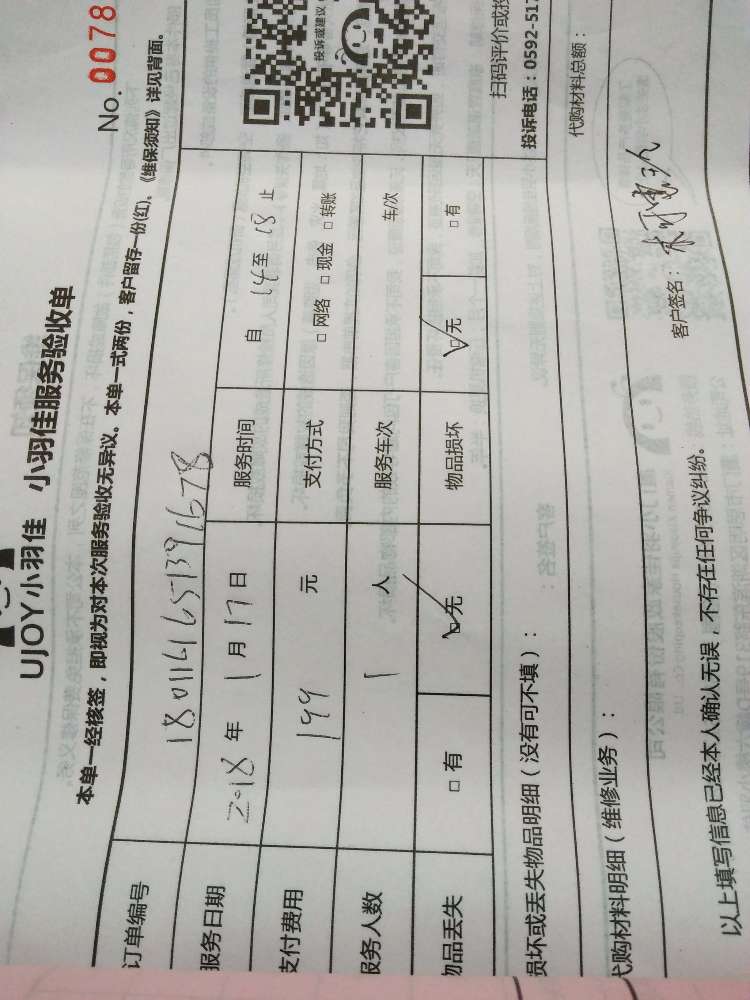 UJOY小羽佳 小羽佳服务验收单
No. 0078
本单一经核签，即视为对本次服务验收无异议。本单一式两份，客户留存一份(红)。《维保须知》详见背面。
订单编号 1801141651391678
服务日期 2018 年 1 月 17 日 服务时间 自 14 至 18 止
支付费用 199 元 支付方式 □ 网络 □ 现金 □ 转账
服务人数 1 人 服务车次 车/次
物品丢失 □ 有 □ 无 物品损坏 □ 无 □ 有
投诉或建议
扫码评价或投
投诉电话：0592-517
损坏或丢失物品明细（没有可不填）：
代购材料明细（维修业务）：
代购材料总额：
以上填写信息已经本人确认无误，不存在任何争议纠纷。
客户签名：